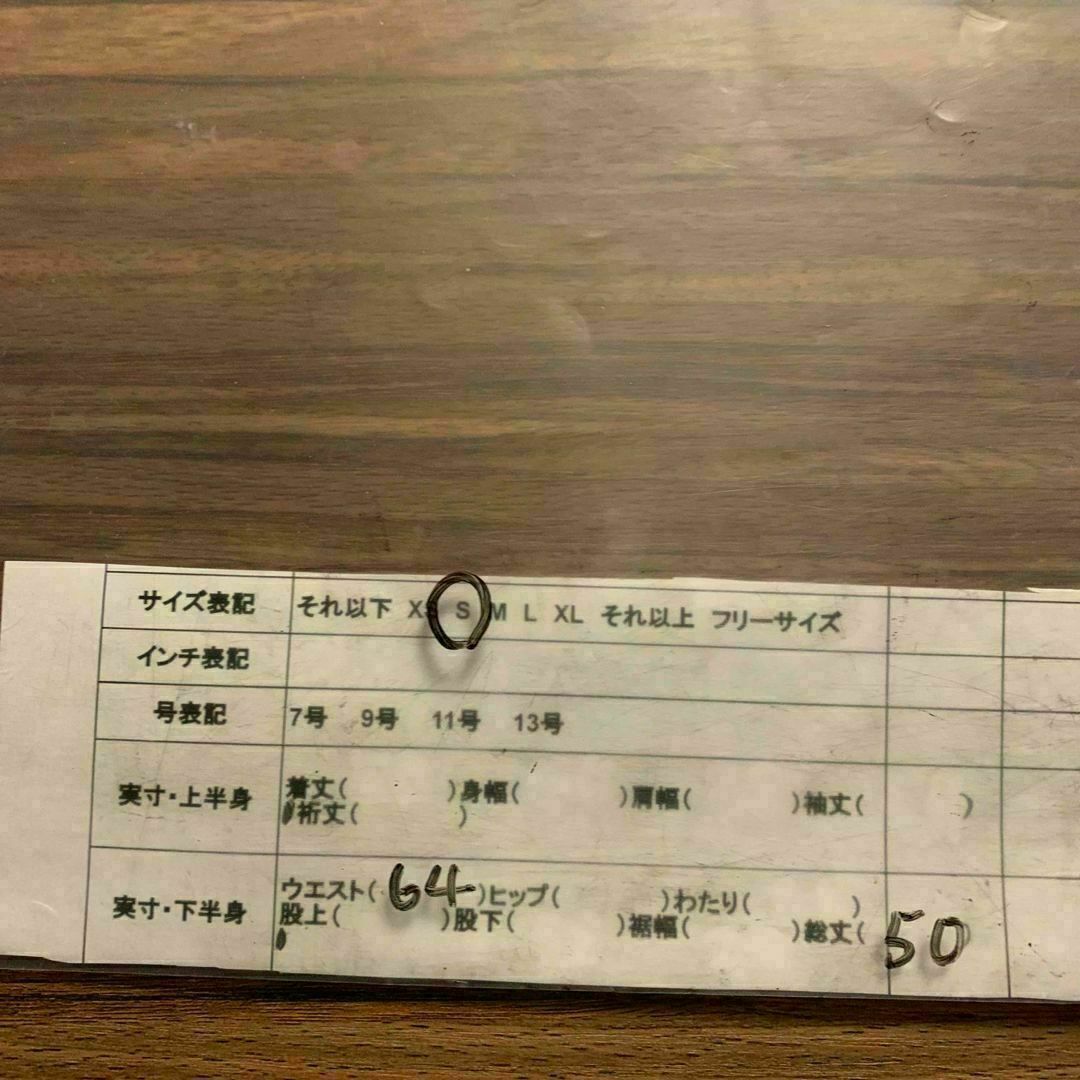 サイズ表記 それ以下 XS S M L XL それ以上 フリーサイズ
インチ表記
号表記 7号 9号 11号 13号
実寸・上半身 着丈( )身幅( )肩幅( )袖丈( )
裄丈( )
実寸・下半身 ウエスト( 64 )ヒップ( )わたり( )
股上( )股下( )裾幅( )総丈( 50